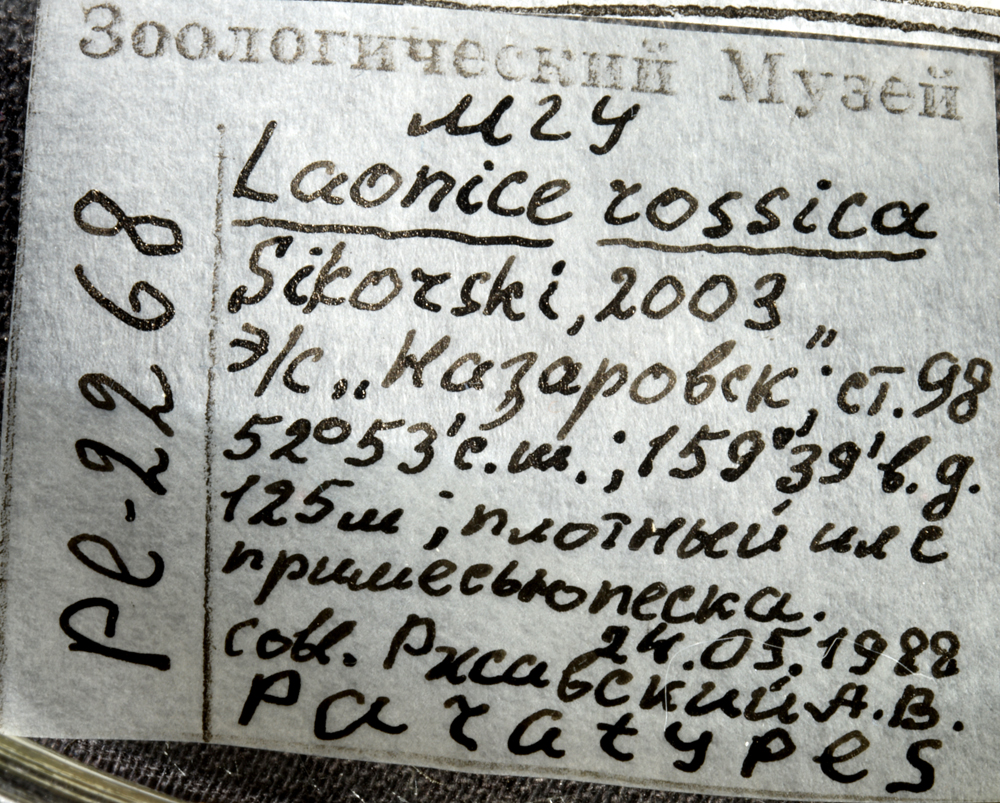 Зоологический Музей
МГУ
Laonice rossica
Sikorski, 2003
э/с „Назаровск", ст. 98
52°53' с.ш.; 159°39' в.д.
125м; плотный ил с
примесью песка.
24.05.1988
собр. Ржавский А.В.
Paratypes
Pl-2268